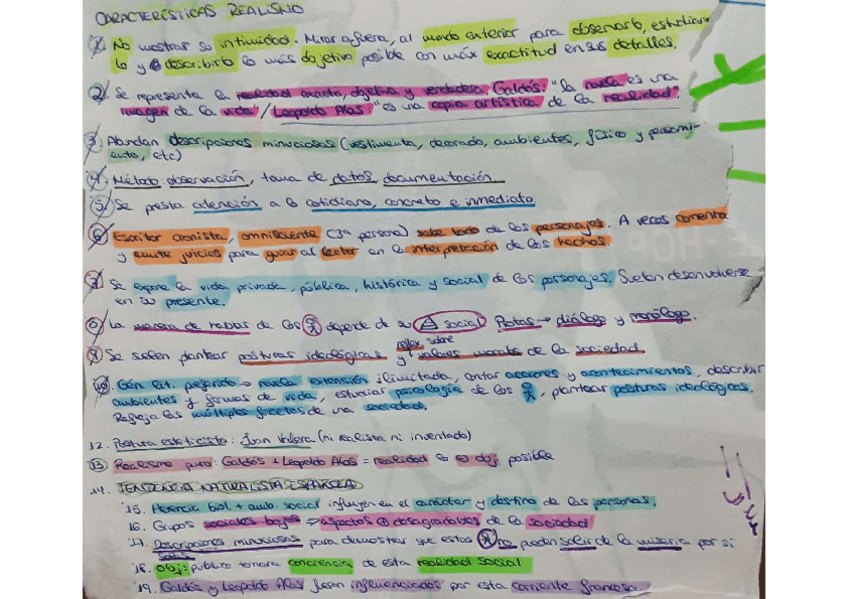 CARACTERÍSTICAS REALISMO
1. No mostrar su intimidad. Mirar afuera, al mundo exterior para observarlo, estudiar-
lo y describirlo lo más objetivo posible con máx exactitud en sus detalles.
2. Se representa la realidad exacta, objetiva y verdadera. Galdós: "La novela es una
imagen de la vida" / Leopoldo Alas: "es una copia artística de la realidad"
3. Abundan descripciones minuciosas (vestimenta, decorado, ambientes, físico y pensami-
ento, etc)
4. Método observación, toma de datos, documentación
5. Se presta atención a lo cotidiano, concreto e inmediato
6. Escritor cronista, omnisciente (3ª persona) sabe todo de los personajes. A veces comenta
y emite juicios para guiar al lector en la interpretación de los hechos
7. Se expone la vida privada, pública, histórica y social de los personajes. Suelen desenvolverse
en su presente.
8. La manera de hablar de los depende de su social. → diálogo y monólogo.
9. Se suelen plantear posturas ideológicas y reflex. sobre valores morales de la sociedad
10. Gén lit. preferido → novela extensión ilimitada, contar acciones y acontecimientos, describir
ambientes y formas de vida, estudiar psicología de los , plantear posturas ideológicas.
Refleja las múltiples facetas de una sociedad.
12. Postura esteticista: Juan Valera (ni realista ni inventado)
13. Realismo puro: Galdós + Leopoldo Alas = realidad lo obj. posible
14. TENDENCIA NATURALISTA ESPAÑOLA
15. Herencia biol. + amb. social influyen en el carácter y destino de las personas.
16. Grupos sociales bajos → aspectos desagradables de la sociedad
17. Descripciones minuciosas para demostrar que estos no pueden salir de la miseria por sí
solos
18. Obj: público tomara conciencia de esta realidad social
19. Galdós y Leopoldo Alas fueron influenciados por esta corriente francesa.